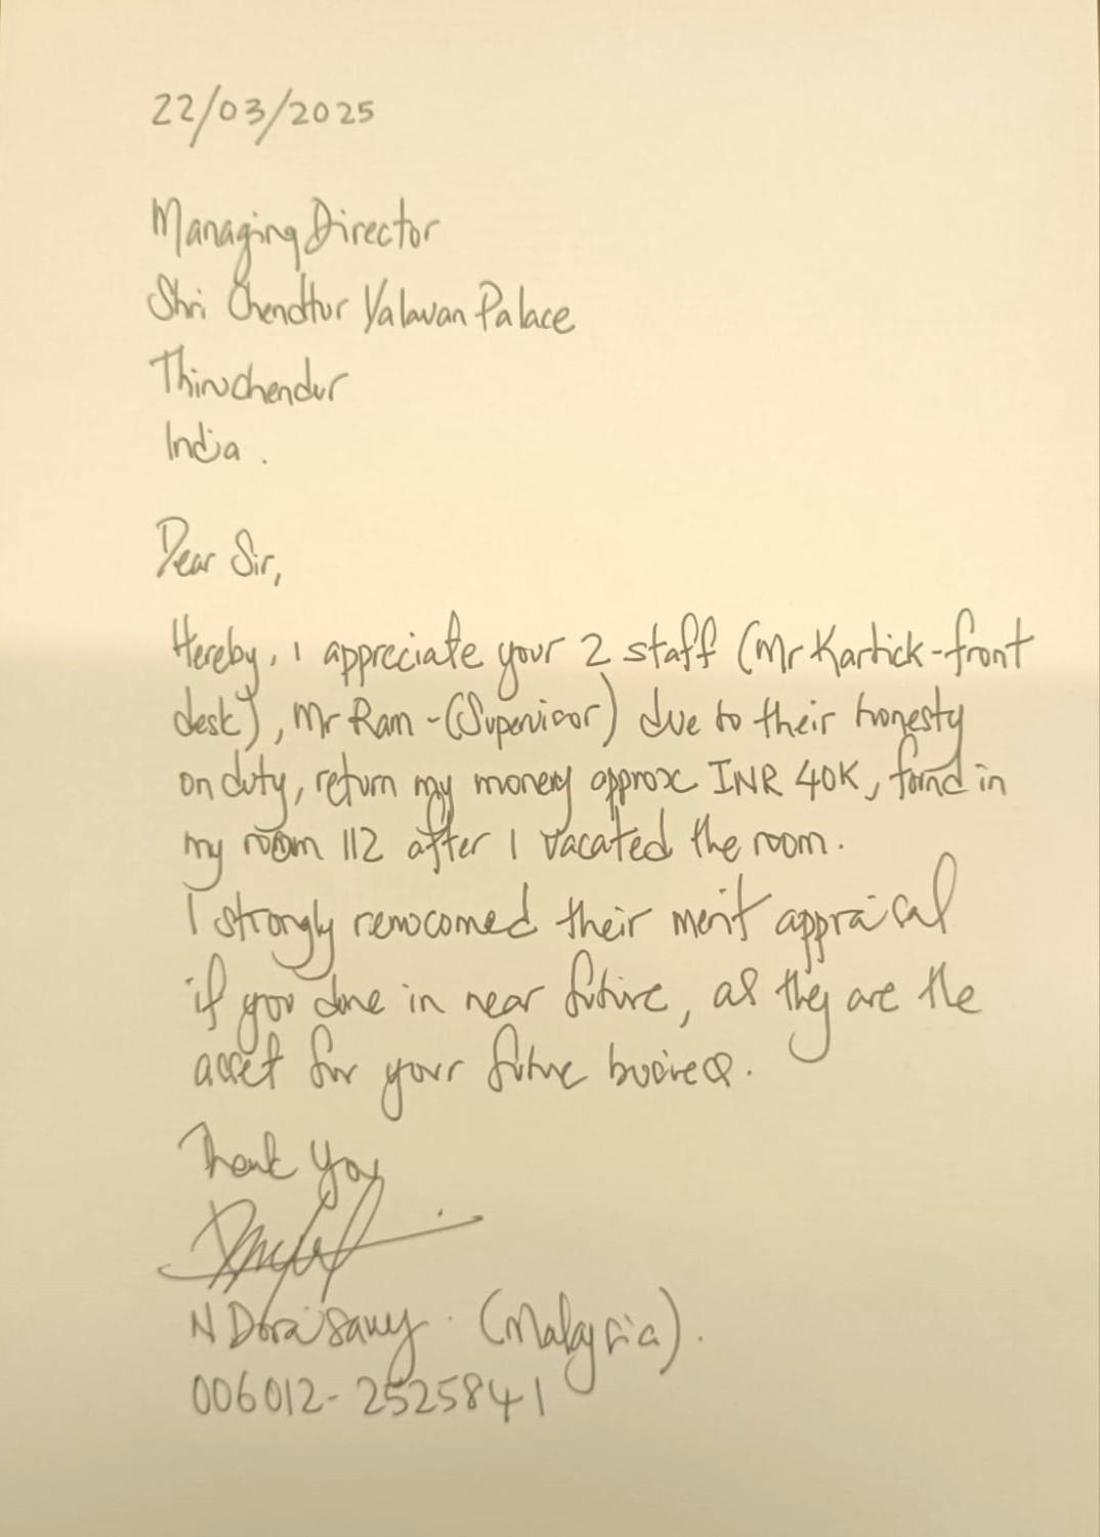 22/03/2025
Managing Director
Shri Chendhur Valavan Palace
Thiruchendur
India.
Dear Sir,
Hereby, I appreciate your 2 staff (Mr Kartick-front
desk), Mr Ram-(Supervisor) due to their honesty
on duty, return my money approx INR 40K, found in
my room 112 after I vacated the room.
I strongly remocomed their merit appraisal
if you done in near future, as they are the
asset for your future business.
Thank you
N Doraisamy. (Malaysia).
006012-2525841